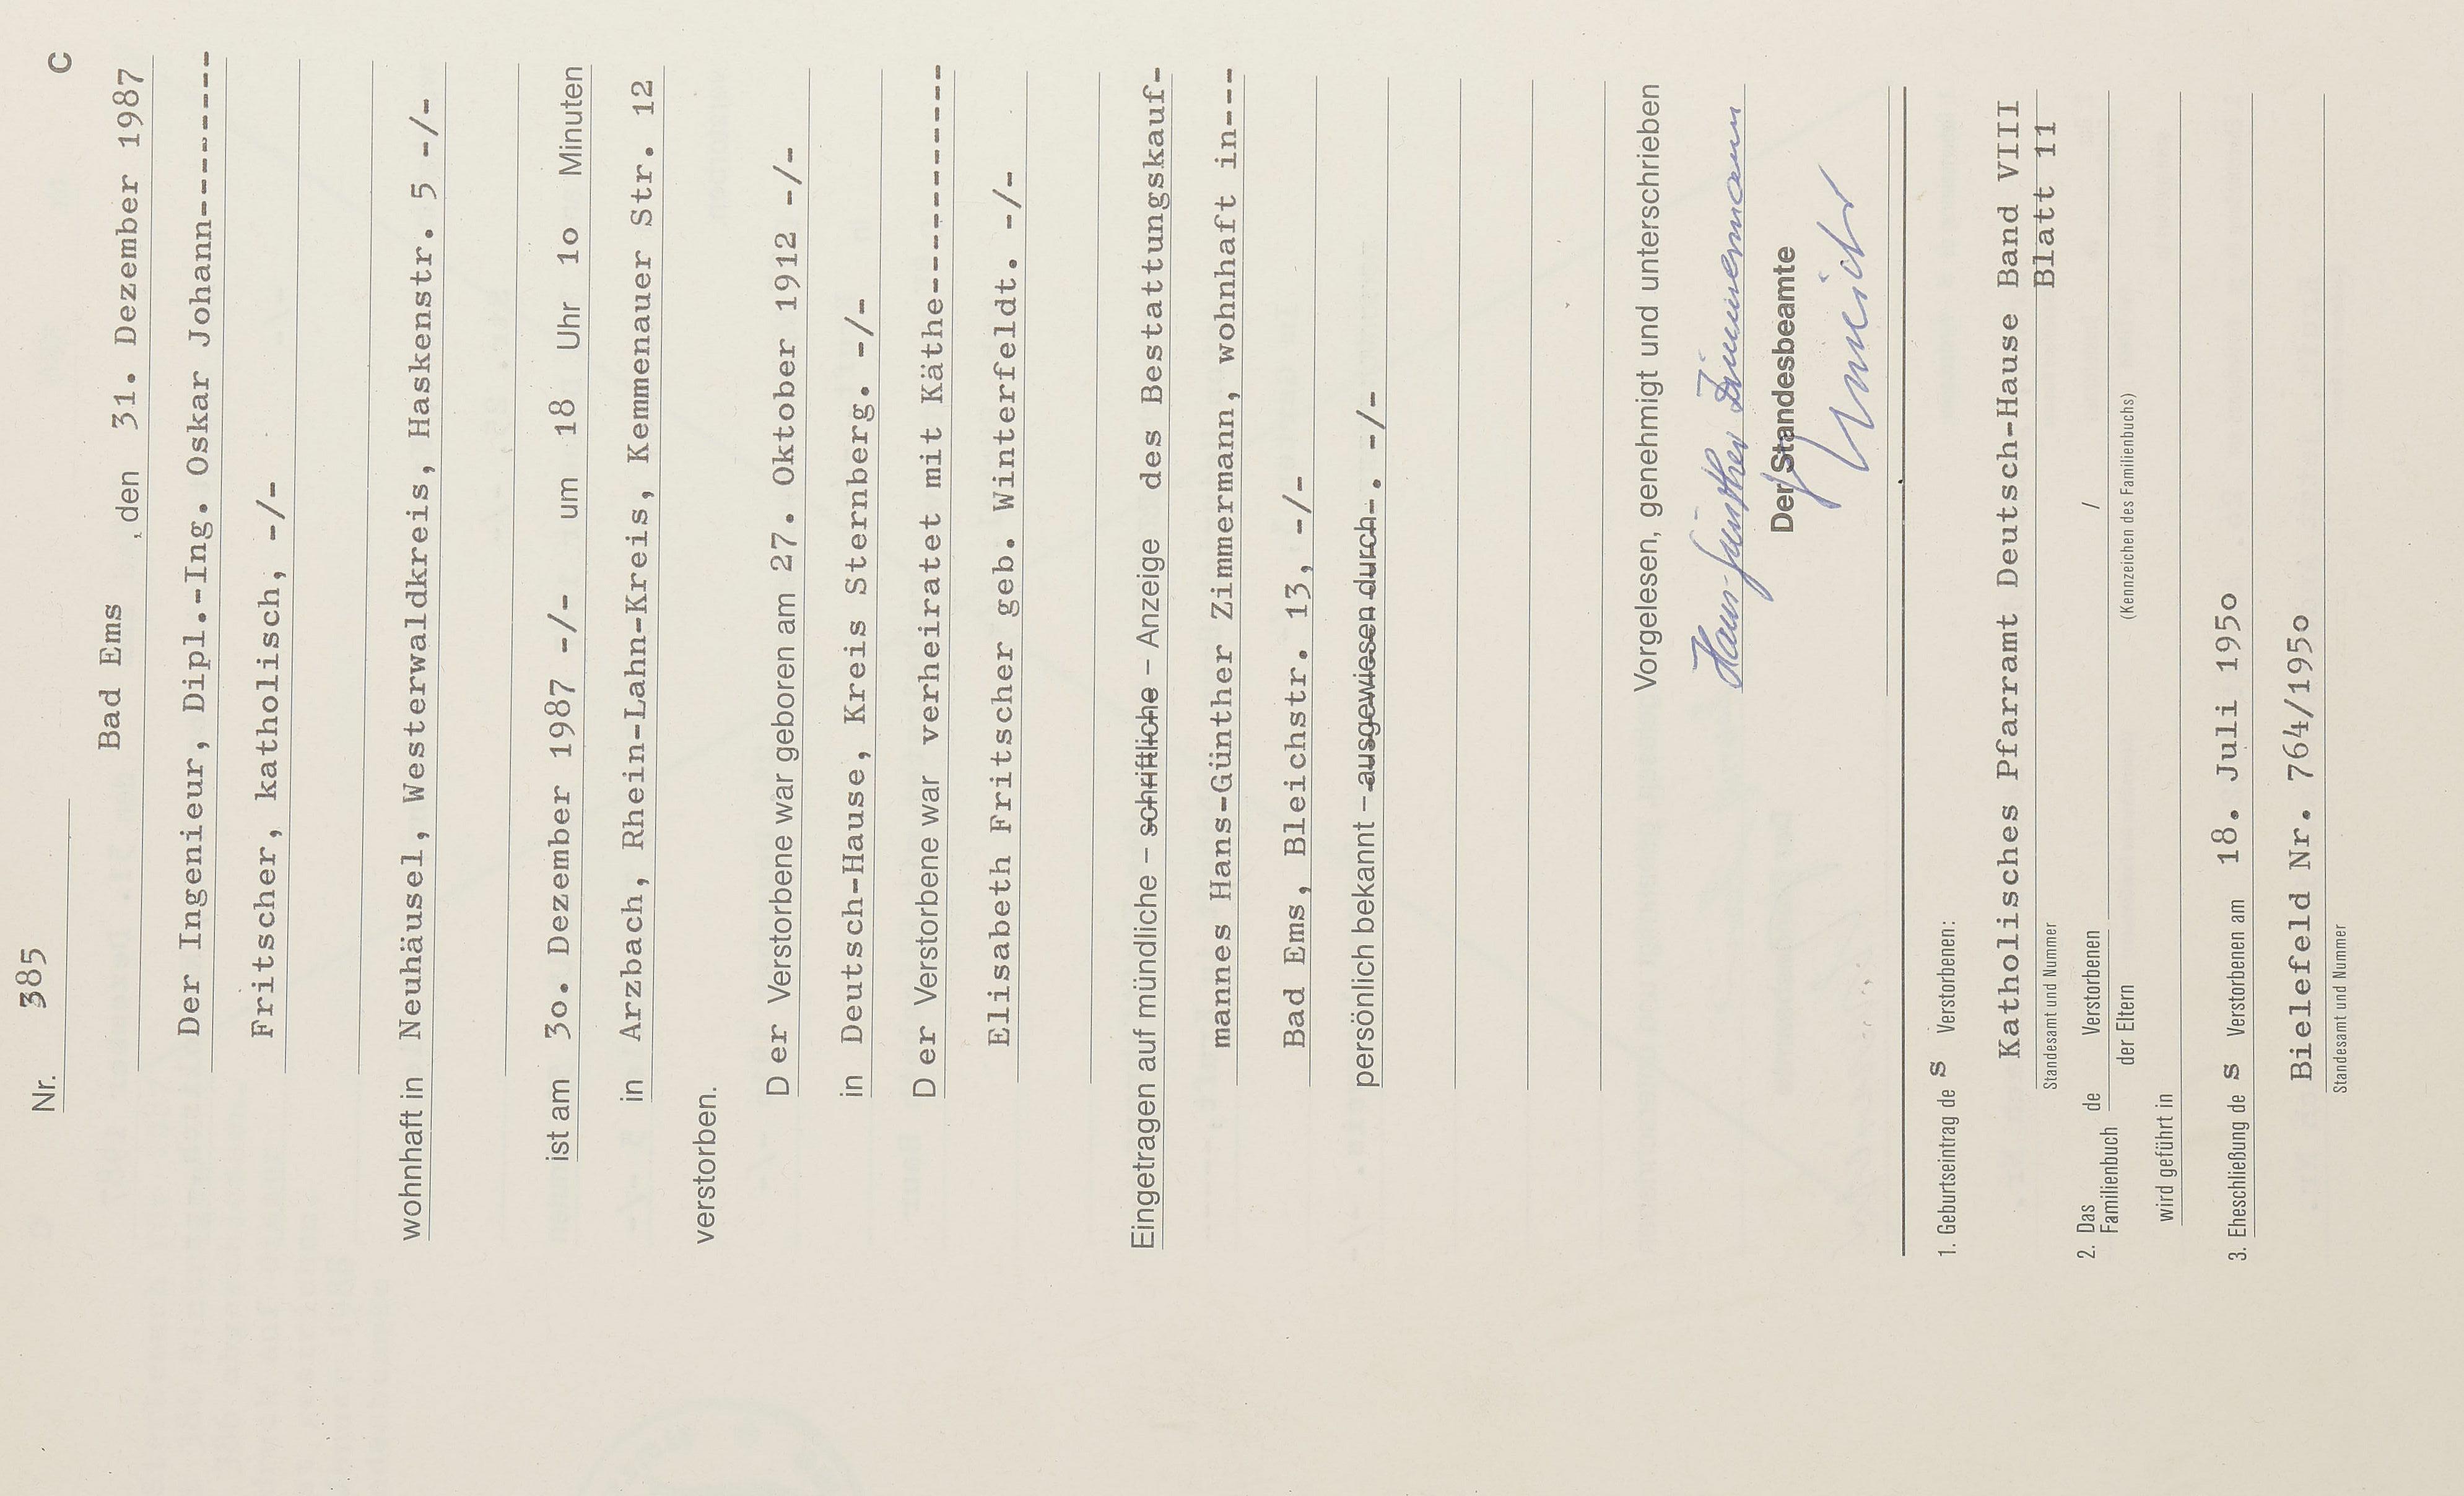 C
Nr. 385
Bad Ems, den 31. Dezember 1987
Der Ingenieur, Dipl.-Ing. Oskar Johann---------
Fritscher, katholisch, -/-
wohnhaft in Neuhäusel, Westerwaldkreis, Haskenstr. 5 -/-
ist am 3o. Dezember 1987 -/- um 18 Uhr 1o Minuten
in Arzbach, Rhein-Lahn-Kreis, Kemmenauer Str. 12
verstorben.
D er Verstorbene war geboren am 27. Oktober 1912 -/-
in Deutsch-Hause, Kreis Sternberg. -/-
D er Verstorbene war verheiratet mit Käthe-------------
Elisabeth Fritscher geb. Winterfeldt. -/-
Eingetragen auf mündliche – schriftliche – Anzeige des Bestattungskauf-
mannes Hans-Günther Zimmermann, wohnhaft in----
Bad Ems, Bleichstr. 13, -/-
persönlich bekannt – ausgewiesen durch-. -/-
Vorgelesen, genehmigt und unterschrieben
Hans-Günther Zimmermann
Der Standesbeamte
1. Geburtseintrag de s Verstorbenen:
Katholisches Pfarramt Deutsch-Hause Band VIII
Blatt 11
Standesamt und Nummer
2. Das Familienbuch de Verstorbenen /
der Eltern
(Kennzeichen des Familienbuchs)
wird geführt in
3. Eheschließung de s Verstorbenen am 18. Juli 195o
Bielefeld Nr. 764/195o
Standesamt und Nummer